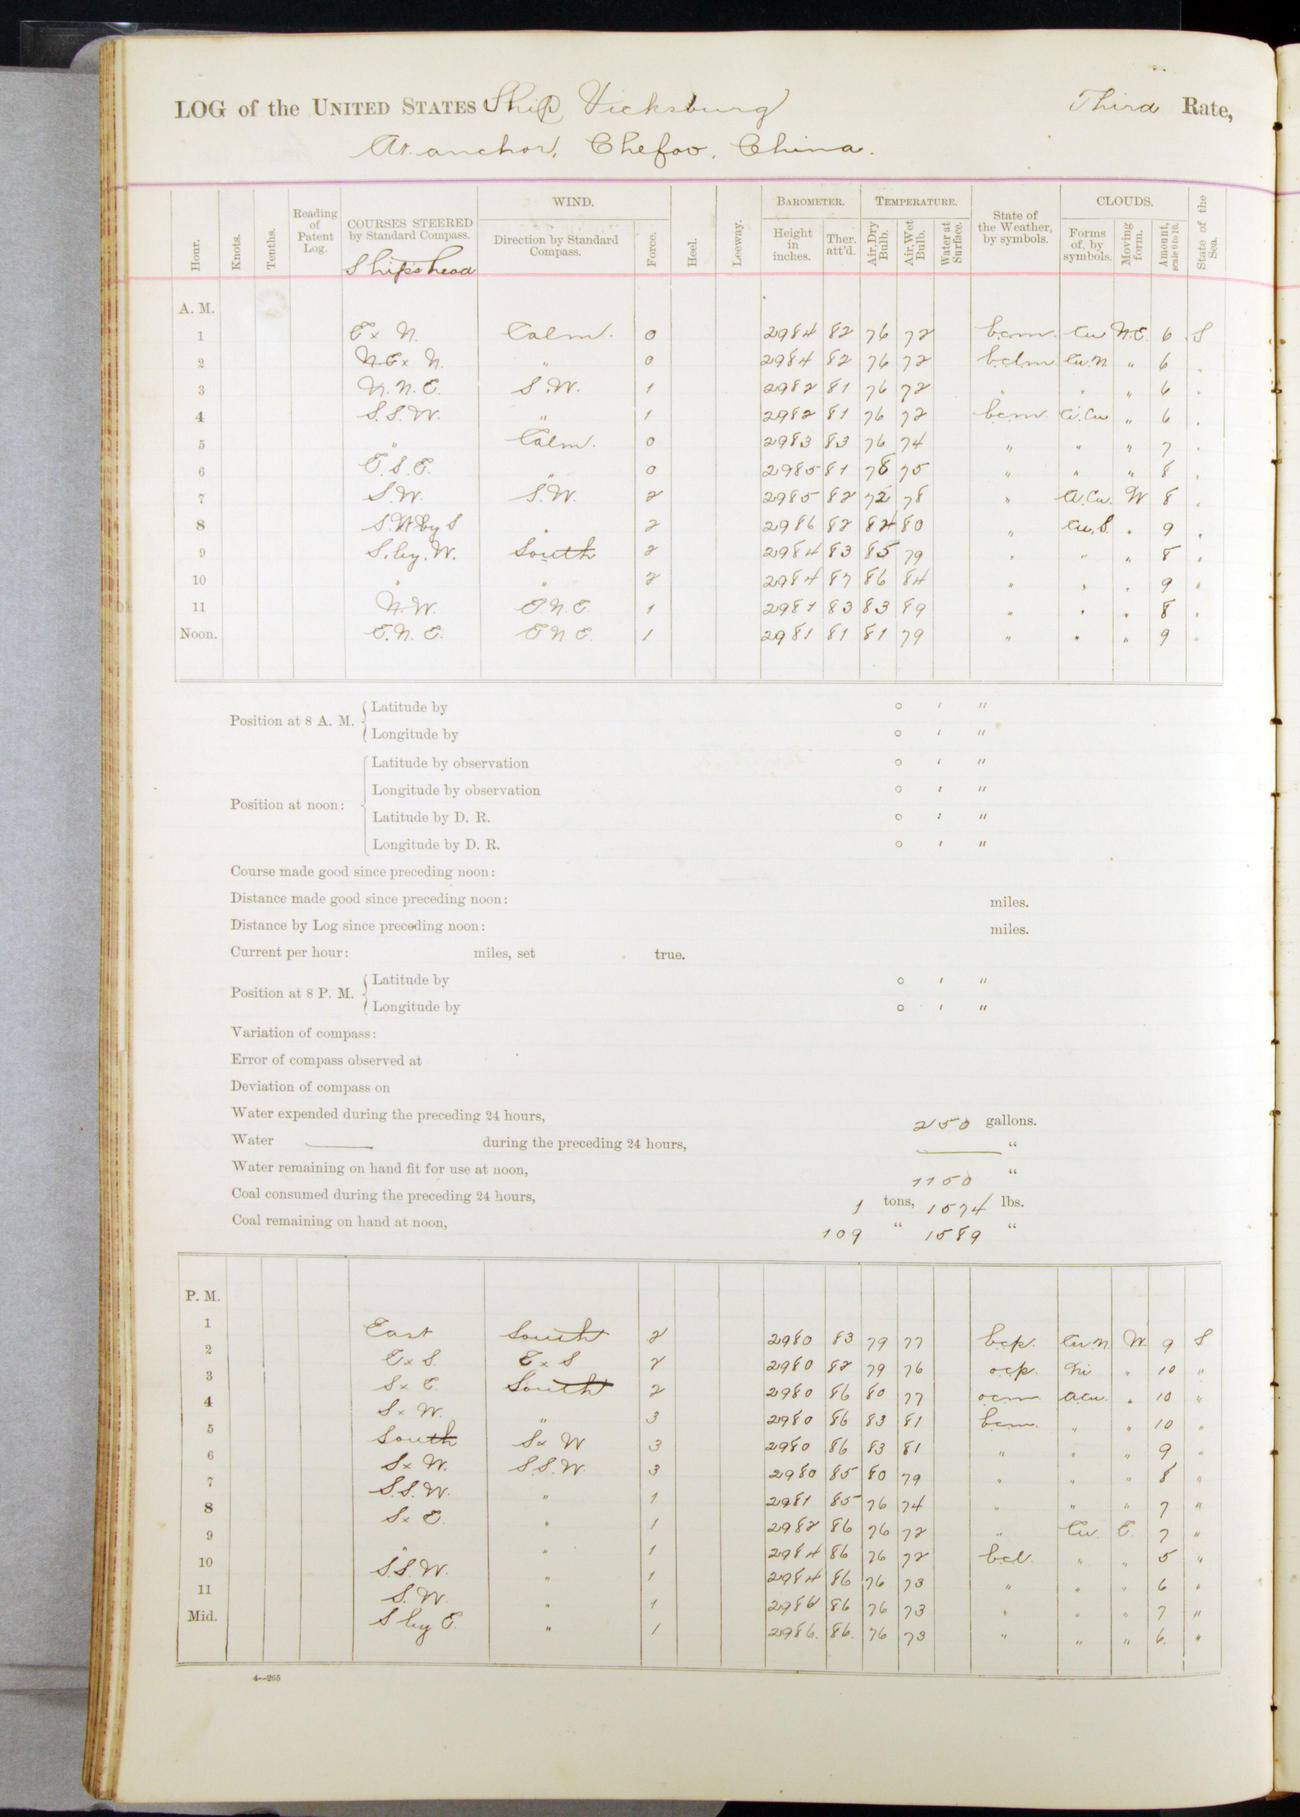 LOG of the UNITED STATES Ship Vicksburg Third Rate,
At anchor, Chefoo, China.
Hour. Knots. Tenths. Reading of Patent Log. COURSES STEERED by Standard Compass. Ship's head WIND. Direction by Standard Compass. Force. Heel. Leeway. BAROMETER. Height in inches. Ther. att'd. TEMPERATURE. Air, Dry Bulb. Air, Wet Bulb. Water at Surface. State of the Weather, by symbols. CLOUDS. Forms of, by symbols. Moving form. Amount, scale 0 to 10. State of the Sea.
A. M.
1 E x N. Calm. 0 2984 82 76 72 bcm. Cu N.E. 6 S
2 N.E x N. " 0 2984 82 76 72 bclm Cu.N " 6 "
3 N.N.E. S.W. 1 2982 81 76 72 " " " 6 "
4 S.S.W. " 1 2982 81 76 72 bcm Ci.Cu " 6 "
5 " Calm. 0 2983 83 76 74 " " " 7 "
6 E.S.E. " 0 2985 81 78 75 " " " 8 "
7 S.W. S.W. 2 2985 82 72 78 " A.Cu. W 8 "
8 S.W by S " 2 2986 82 82 80 " Cu.S. " 9 "
9 S. by. W. South 2 2984 83 85 79 " " " 8 "
10 " " 2 2984 87 86 84 " " " 9 "
11 N.W. E.N.E. 1 2981 83 83 89 " " " 8 "
Noon. E.N.E. E.N.E. 1 2981 81 81 79 " " " 9 "
Position at 8 A. M. Latitude by ° ' "
Longitude by ° ' "
Position at noon: Latitude by observation ° ' "
Longitude by observation ° ' "
Latitude by D. R. ° ' "
Longitude by D. R. ° ' "
Course made good since preceding noon:
Distance made good since preceding noon: miles.
Distance by Log since preceding noon: miles.
Current per hour: miles, set true.
Position at 8 P. M. Latitude by ° ' "
Longitude by ° ' "
Variation of compass:
Error of compass observed at
Deviation of compass on
Water expended during the preceding 24 hours, 250 gallons.
Water —— during the preceding 24 hours, —— "
Water remaining on hand fit for use at noon, 1150 "
Coal consumed during the preceding 24 hours, 1 tons, 1574 lbs.
Coal remaining on hand at noon, 109 " 1589 "
P. M.
1 East South 2 2980 83 79 77 bcp. Cu.N. W. 9 S
2 E x S. E x S 2 2980 82 79 76 ocp. Ni " 10 "
3 S x E. South 2 2980 86 80 77 ocm A.Cu. " 10 "
4 S x W. " 3 2980 86 83 81 bcm. " " 10 "
5 South S x W 3 2980 86 83 81 " " " 9 "
6 S x W. S.S.W. 3 2980 85 80 79 " " " 8 "
7 S.S.W. " 1 2981 85 76 74 " " " 7 "
8 S x E. " 1 2982 86 76 72 " Cu. E. 7 "
9 " " 1 2984 86 76 72 bcl. " " 5 "
10 S.S.W. " 1 2984 86 76 73 " " " 6 "
11 S.W. " 1 2986 86 76 73 " " " 7 "
Mid. S by E. " 1 2986. 86. 76 73 " " " 6. "
4—265